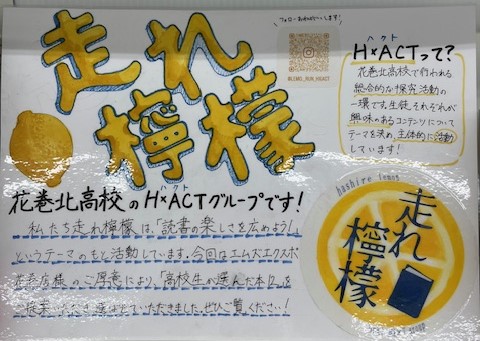 フォローお願いいたします!
走れ
檸檬
ハクト
H×ACTって?
花巻北高校で行われる
総合的な探究活動の
一環です。生徒それぞれが
興味のあるコンテンツについて
テーマを決め、主体的に活動
しています!
ハクト
花巻北高校のH×ACTグループです!
私たち走れ檸檬は、「読書の楽しさを広めよう!」
というテーマのもと活動しています。今回はエムズエクスポ
花巻店様のご厚意により、「高校生が選んだ本」を
選ばせていただきました。ぜひご覧ください!
hashire lemon
走れ
檸檬